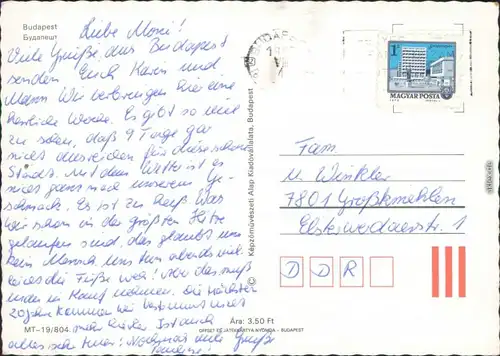 Budapest
Будапешт
Liebe Moni!
Viele Grüße aus Budapest
senden Euch Karin und
Mann Wir verbringen hier eine
herrliche Woche. Es gibt so viel
zu sehen, daß 9 Tage gar
nicht ausreichen für diese schöne
Stadt. Mit dem Wetter ist es
nicht ganz nach unserem Ge-
schmack. Es ist zu heiß. Was
wir schon in der größten Hitze
gelaufen sind, das glaubt uns
kein Mensch. Uns tun abends
die Füße weh! Aber das muß
man in Kauf nehmen. Die nächsten
20 Jahre kommen wir bestimmt nicht
mehr hierher. Ist auch
alles sehr teuer! Nochmals viele Grüße
MT-19/804
Ára: 3,50 Ft
Képzőművészeti Alap Kiadóvállalata, Budapest
OFFSET ÉS JÁTÉKKÁRTYA NYOMDA - BUDAPEST
BUDAPEST
1 Ft
MAGYAR POSTA
Fam.
M. Winkler
7801 Großkmehlen
Elsterwerdaerstr. 1
D D R